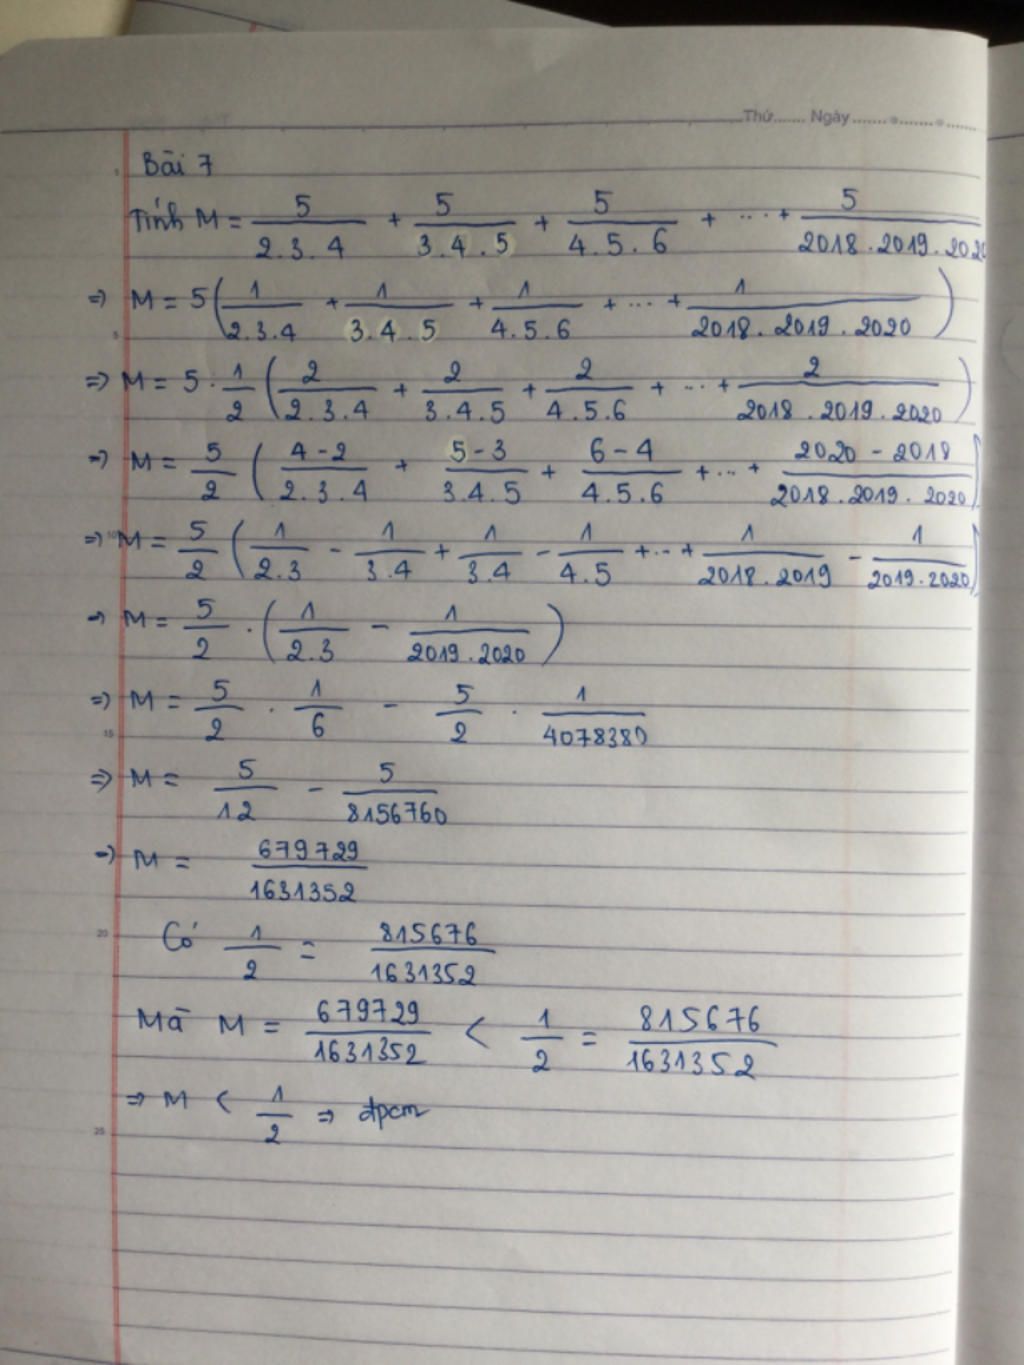 Thứ...... Ngày.......................
Bài 7
Tính M = 5/2.3.4 + 5/3.4.5 + 5/4.5.6 + ... + 5/2018.2019.2020
=> M = 5(1/2.3.4 + 1/3.4.5 + 1/4.5.6 + ... + 1/2018.2019.2020)
=> M = 5 . 1/2 (2/2.3.4 + 2/3.4.5 + 2/4.5.6 + ... + 2/2018.2019.2020)
=> M = 5/2 (4-2/2.3.4 + 5-3/3.4.5 + 6-4/4.5.6 + ... + 2020-2018/2018.2019.2020)
=> M = 5/2 (1/2.3 - 1/3.4 + 1/3.4 - 1/4.5 + ... + 1/2018.2019 - 1/2019.2020)
=> M = 5/2 . (1/2.3 - 1/2019.2020)
=> M = 5/2 . 1/6 - 5/2 . 1/4078380
=> M = 5/12 - 5/8156760
=> M = 679729/1631352
Có 1/2 = 815676/1631352
Mà M = 679729/1631352 < 1/2 = 815676/1631352
=> M < 1/2 => đpcm